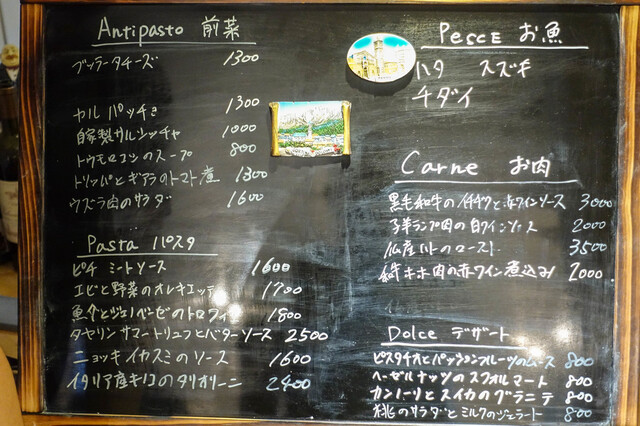 Antipasto 前菜
ブッラータチーズ 1300
カルパッチョ 1300
自家製サルシッチャ 1000
トウモロコシのスープ 800
トリッパとギアラのトマト煮 1300
ウズラ肉のサラダ 1600
Pasta パスタ
ピチ ミートソース 1600
エビと野菜のオレキエッテ 1700
魚介とジェノベーゼのトロフィエ 1800
タヤリン サマートリュフとバターソース 2500
ニョッキ イカスミのソース 1600
イタリア産キノコのタリオリーニ 2400
Pesce お魚
ハタ スズキ
チダイ
Carne お肉
黒毛和牛のイチボ 赤ワインソース 3000
子羊ランプ肉の白ワインソース 2000
仏産ハトのロースト 3500
和牛ホホ肉の赤ワイン煮込み 2000
Dolce デザート
ピスタチオとパッションフルーツのムース 800
ヘーゼルナッツのスフォルマート 800
カンノーリとスイカのグラニテ 800
桃のサラダとミルクのジェラート 800